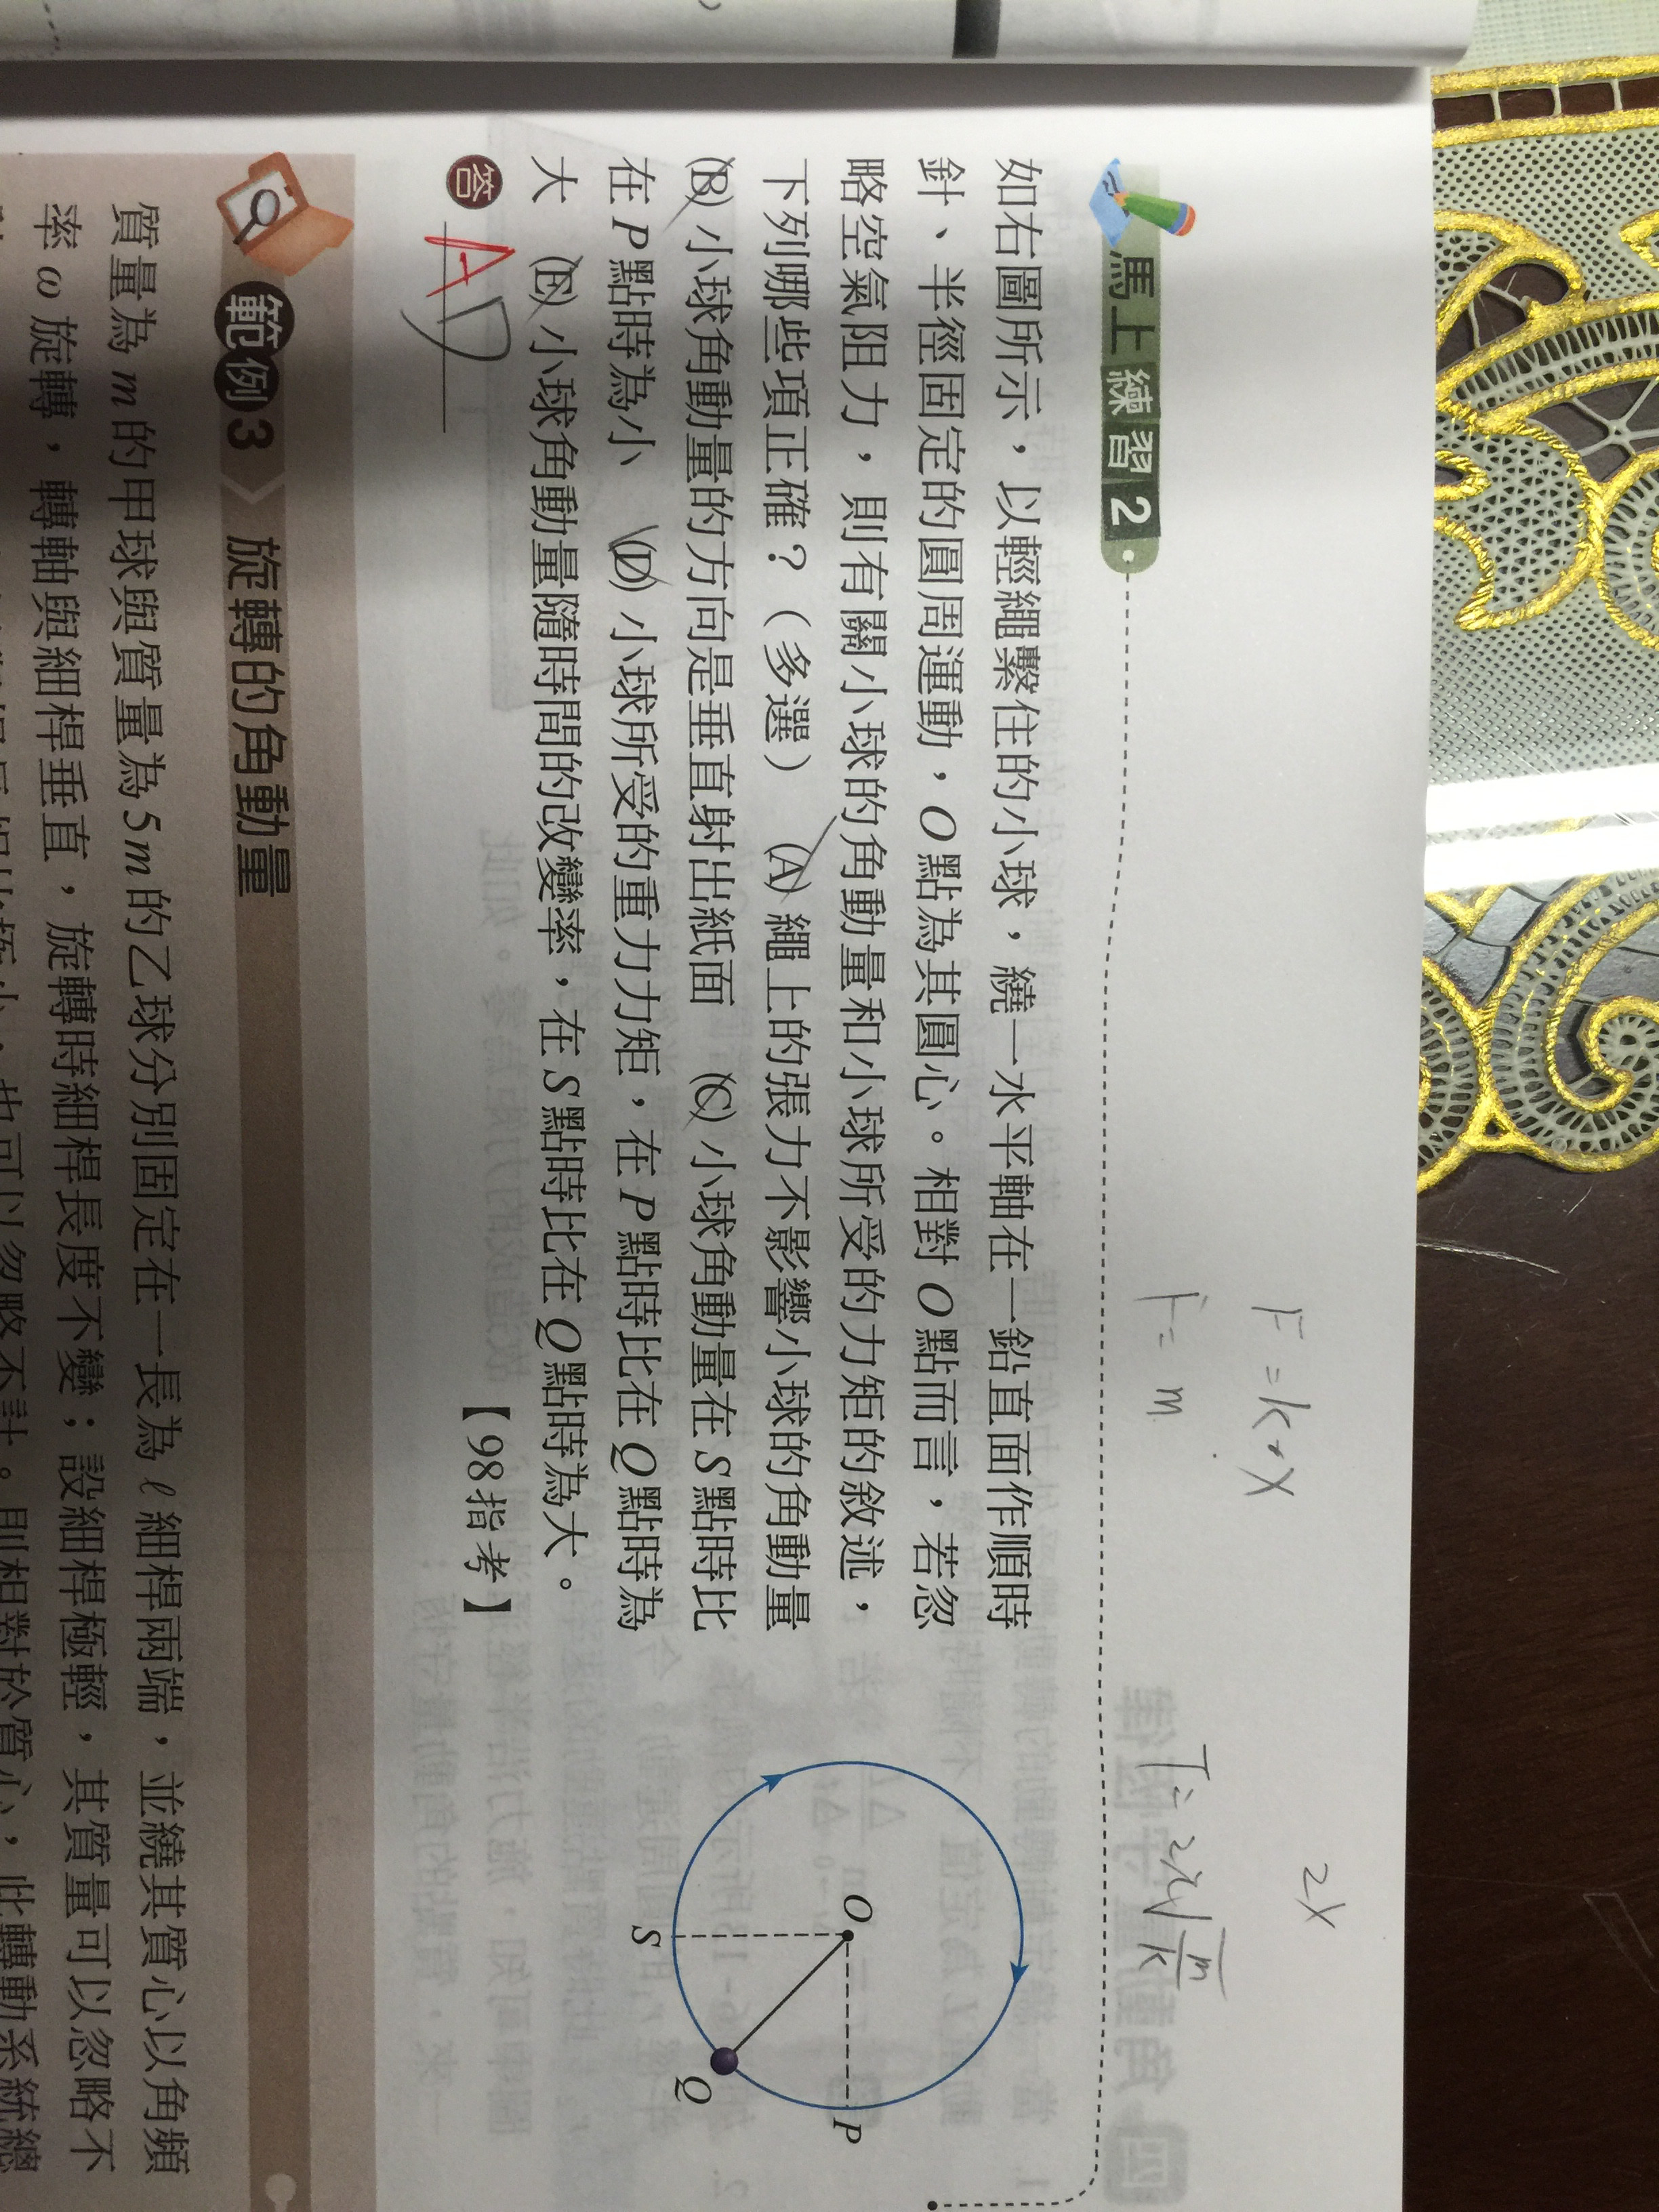 馬上練習2
如右圖所示，以輕繩繫住的小球，繞一水平軸在一鉛直面作順時
針、半徑固定的圓周運動，O點為其圓心。相對O點而言，若忽
略空氣阻力，則有關小球的角動量和小球所受的力矩的敘述，
下列哪些項正確？（多選） (A) 繩上的張力不影響小球的角動量
(B) 小球角動量的方向是垂直射出紙面 (C) 小球角動量在S點時比
在P點時為小 (D) 小球所受的重力力矩，在P點時比在Q點時為
大 (E) 小球角動量隨時間的改變率，在S點時比在Q點時為大。
【98指考】
答 AD
O
P
Q
S
F=k·X
F= m
T=2π√m/k
2X
範例3 旋轉的角動量
質量為m的甲球與質量為5m的乙球分別固定在一長為ℓ細桿兩端，並繞其質心以角頻
率ω旋轉，轉軸與細桿垂直，旋轉時細桿長度不變；設細桿極輕，其質量可以忽略不
也可以忽略不計。則相對於質心，此轉動系統總